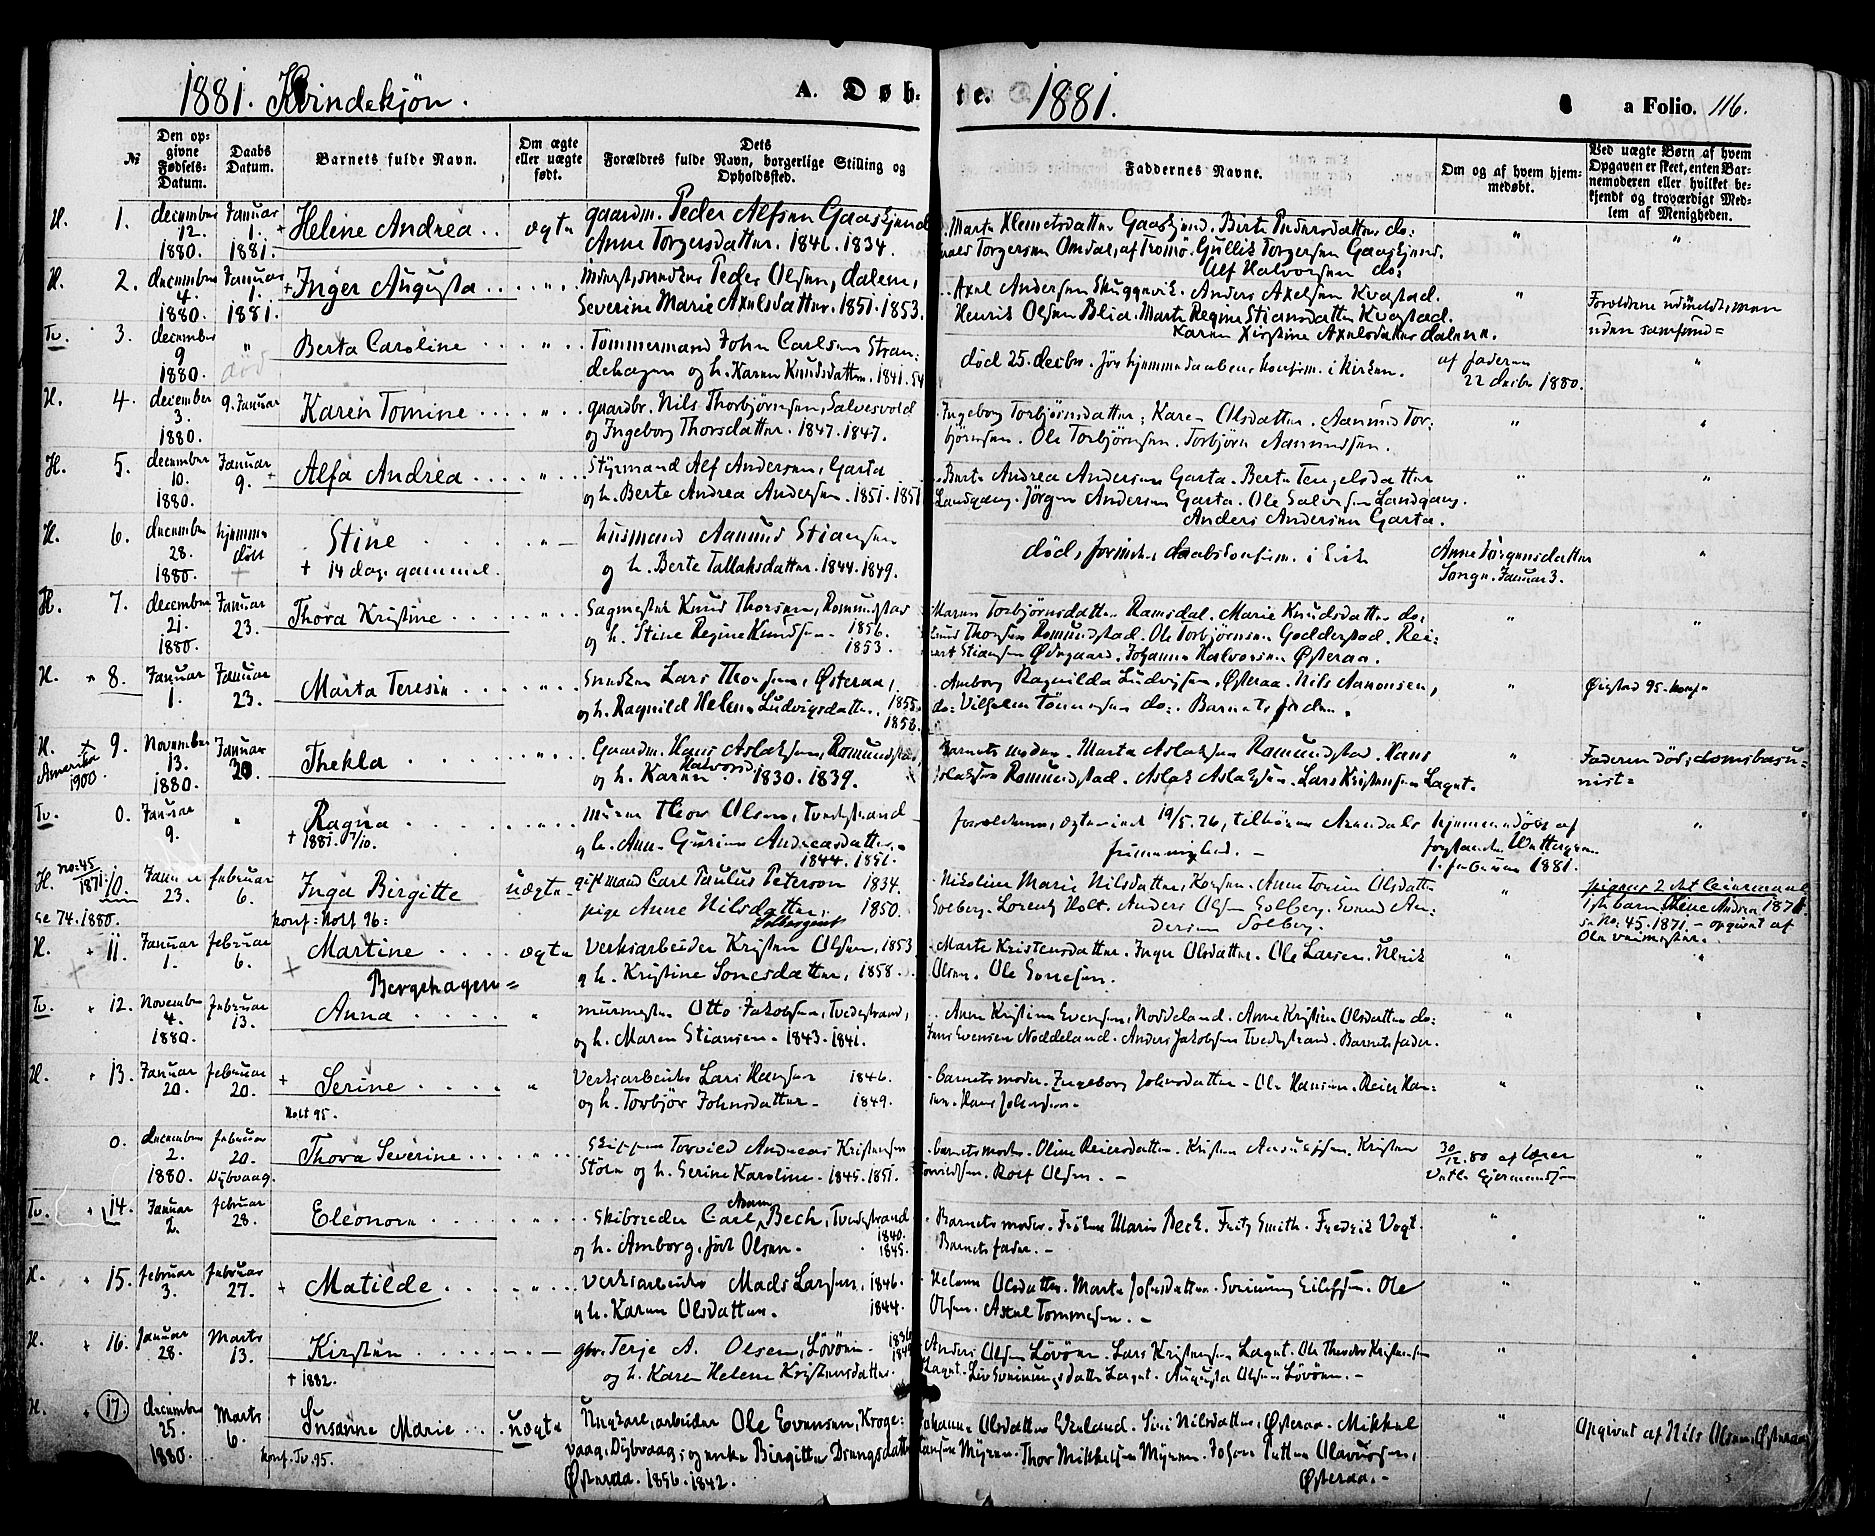 1881. Kvindekjøn. A. Døb-
te. 1881. a Folio. 116.
№
Den opgivne Fødsels-Datum.
Daabs Datum.
Barnets fulde Navn.
Om ægte eller uægte født.
Dets Forældres fulde Navn, borgerlige Stilling og Opholdssted.
Faddernes Navne.
Om og af hvem hjemmedøbt.
Ved uægte Børn af hvem Opgaven er skeet, enten Barnemoderen eller hvilket bekjendt og troværdigt Medlem af Menigheden.
H. 1. december 12. 1880. Januar 1. 1881. Helene Andrea . . ægte
gaardm. Peder Alfsen Gaaskjend
Anne Torgersdatter. 1846. 1834.
Marte Klemetsdatter Gaaskjend. Berte Pedersdatter do:
Torgersen Omdal, af Tromø. Gullik Torgersen Gaaskjend.
Alf Halvorsen do:
H. 2. december 4. 1880. Januar 1. 1881. Inger Augusta . . "
Peder Olsen, dalene,
Severine Marie Axelsdatter. 1851. 1853.
Axel Andersen Skuggevik. Anders Axelsen Kvastad.
Henrik Olsen Blia. Marte Regine Stiansdatter Kvastad.
Karen Kirstine Axelsdatter dalene.
Forældrene udmeldt, men
uden samfund=
Tv. 3. december 9 1880. " død Berta Caroline . . . "
Tømmermand John Carlsen Stran-
dehagen og h. Karen Knudsdatter. 1841. 54
død 25. decbr. før hjemmedaaben konfirm. i kirken.
af faderen
22 decbr 1880.
H. 4. december 3. 1880. 9. Januar Karen Tomine . . . "
gaardbr. Nils Thorbjørnsen, Salvesvold
og Ingeborg Thorsdatter. 1847. 1847.
Ingeborg Torbjørnsdatter. Karen Olsdatter. Aanund Tor-
bjørnsen. Ole Torbjørnsen. Torbjørn Aanundsen.
H. 5. december 10. 1880. Januar 9. Alfa Andrea . . . "
Styrmand Alf Andersen, Garta
og h. Berte Andrea Andersen. 1851. 1851
Berte Andrea Andersen Garta. Berte Tengelsdatter
Landgang. Jørgen Andersen Garta. Ole Salvesen Landgang.
Anders Andersen Garta.
H. 6. december 28. 1880. hjemme døbt Stine . . . "
+ 14 dage gammel.
husmand Aanund Stiansen
og h. Berte Tallaksdatter. 1844. 1849.
død, forinden daabskonfirm. i kirk
Anne Jørgensdatter
Songe. Januar 3.
H. 7. december 21. 1880. Januar 23. Thora Kristine . . . "
Sagmester Knud Thorsen, Romundstad
og h. Stine Regine Knudsen. 1856. 1853.
Maren Torbjørnsdatter Ramsdal. Marie Knudsdatter do:
Knud Thorsen Romundstad. Ole Torbjørnsen Godderstad. Rei-
ert Stiansen Ødegaard. Johanne Halvorsen Østeraa.
H. 8. Januar 1. Januar 23. Marta Teresia . . . "
Snedker Lars Thorsen, Østeraa,
og h. Ragnild Helene Ludvigsdatter. 1855. 1858.
Amborg Ragnilda Ludvigsen, Østeraa. Nils Aanonsen,
do: Vilhelm Tønnesen do: Barnets fader.
Øiestad 95. konf.
H. + 9. November 13. 1880. Januar 30. Thekla . . . "
Amerika 1900
Gaardm. Hans Aslaksen, Romundstad
og h. Karen Halvorsd 1830. 1839.
Barnets moder. Marte Aslaksen Romundstad. Hans
Aslaksen Romundstad. Aslak Aslaksen. Lars Kristensen Laget.
Faderen død; domsbasu-
nist=
Tv. 0. Januar 9. " Ragna . . . "
+ 1881. 7/10.
murer Thor Olsen, Tvedestrand
og h. Anne Gurine Andreasdatter. 1844. 1851.
forældrene, ægteviet 19/5. 76, tilhører Arendals
frimenighed. —
hjemmedøbt af
forstander Wettergren
1. februar 1881.
H. no: 45 1871. 10. Januar 23. februar 6. Inga Birgitte . . uægte
se 74. 1880. konf: Holt 96:
gift mand Carl Paulus Peterson 1834.
pige Anne Nilsdatter. Solbergeiet 1850.
Nikoline Marie Nilsdatter. Anne Tomine Olsdatter
Solberg. Lorentz Holt. Anders Olsen Solberg. Svend An-
dersen Solberg.
1ste barn 1871.
s. No. 45. 1871. — opgivet af
Ole veimester.
H. 11. Januar 1. februar 6. Martine . . . ægte
Bergehagen=
Verksarbeider Kristen Olsen, 1853
og h. Kristine Sonesdatter, 1858.
Marte Kristensdatter. Inger Olsdatter. Ole Larsen. Ulrik
Olsen. Ole Sonesen.
Tv. 12. November 4. 1880. februar 13. Anna . . . "
murmester Otto Jakobsen, Tvedestrand,
og h. Maren Stiansen. 1843. 1841.
Anne Kristine Evensen, Noddeland. Anne Kristine Olsdatter do:
Jens Evensen Noddeland. Anders Jakobsen Tvedestrand. Barnets fader.
H. 13. Januar 20. februar 20. Serine . . . "
Holt 95.
Verksarbeider Lars Hansen 1846.
og h. Torbjør Johnsdatter 1849.
Barnets moder. Ingeborg Johnsdatter. Ole Hansen. Reier Han-
sen. Hans Johnsen.
0. december 2. 1880. februar 20. Dybvaag. Thora Severine . . . "
Skipper Torvild Andreas Kristensen
Støle og h. Serine Karoline. 1845. 1851.
Barnets moder. Oline Reiersdatter. Kristen Kristen
Torvildsen. Rolf Olsen. —
30/12. 80 af lærer
Gjermundsen
Tv. 14. Januar 2. februar 28. Eleonora . . . "
Skibsreder Carl Adam Bech, Tvedestrand 1840.
og h. Amborg, født Olsen. 1845.
Barnets moder. Frøken Marie Beck. Fritz Smith. Fredrik Vogt.
Barnets fader. —
H. 15. februar 3. februar 27. Matilde . . . "
Verksarbeider Mads Larsen, 1846.
og h. Karen Olsdatter. 1844.
Helene Olsdatter. Marte Johnsdatter. Sveinung Eilefsen. Ole
Olsen. Aksel Tommesen. —
H. 16. Januar 28. Marts 13. Kirsten . . . —
+ 1882.
gbr. Terje A. Olsen, Løvøen 1836
og h. Karen Helene Kristensdatter.
Anders Olsen Løvøen. Lars Kristensen Laget. Ole Theodor Kristensen
Laget. Liv Sveinungsdatter Laget. Augusta Olsen Løvøen. —
H. 17 december 25. 1880. Marts 6. Susanne Marie . . . uægte
konf. Tv. 95.
Ungkarl, arbeider Ole Evensen, Kroge-
vaag, Dybvaag, og enke Birgitte Drengsdatter
Østeraa. 1856. 1842.
Johanne Olsdatter Egeland. Siri Nilsdatter, Østeraa. Mikkel
Hansen Myren. Thor Mikkelsen Myren. Johan Petter Olavussen,
Østeraa. —
Opgivet af Nils Olsen, Østeraa